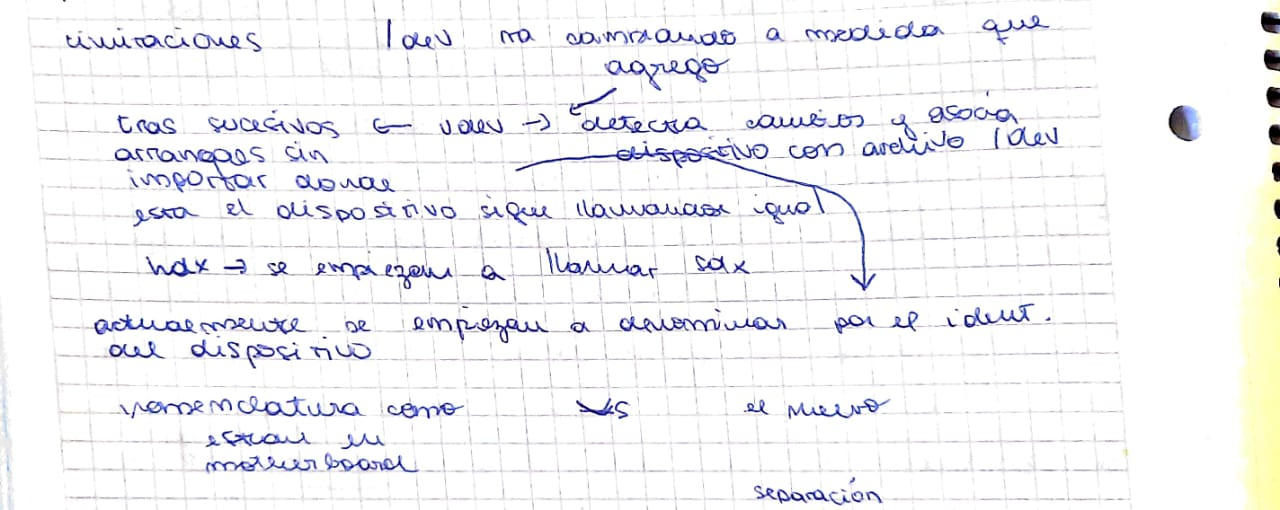 limitaciones /dev va cambiando a medida que
agrego
tras sucesivos ← udev → detecta cambios y asocia
arranques sin dispositivo con archivo /dev
importar donde
esta el dispositivo sigue llamandose igual
hdx → se empiezan a llamar sdx
actualmente se empiezan a denominar por el ident.
del dispositivo
nomenclatura como vs el nuevo
estan en
motherboard
separación